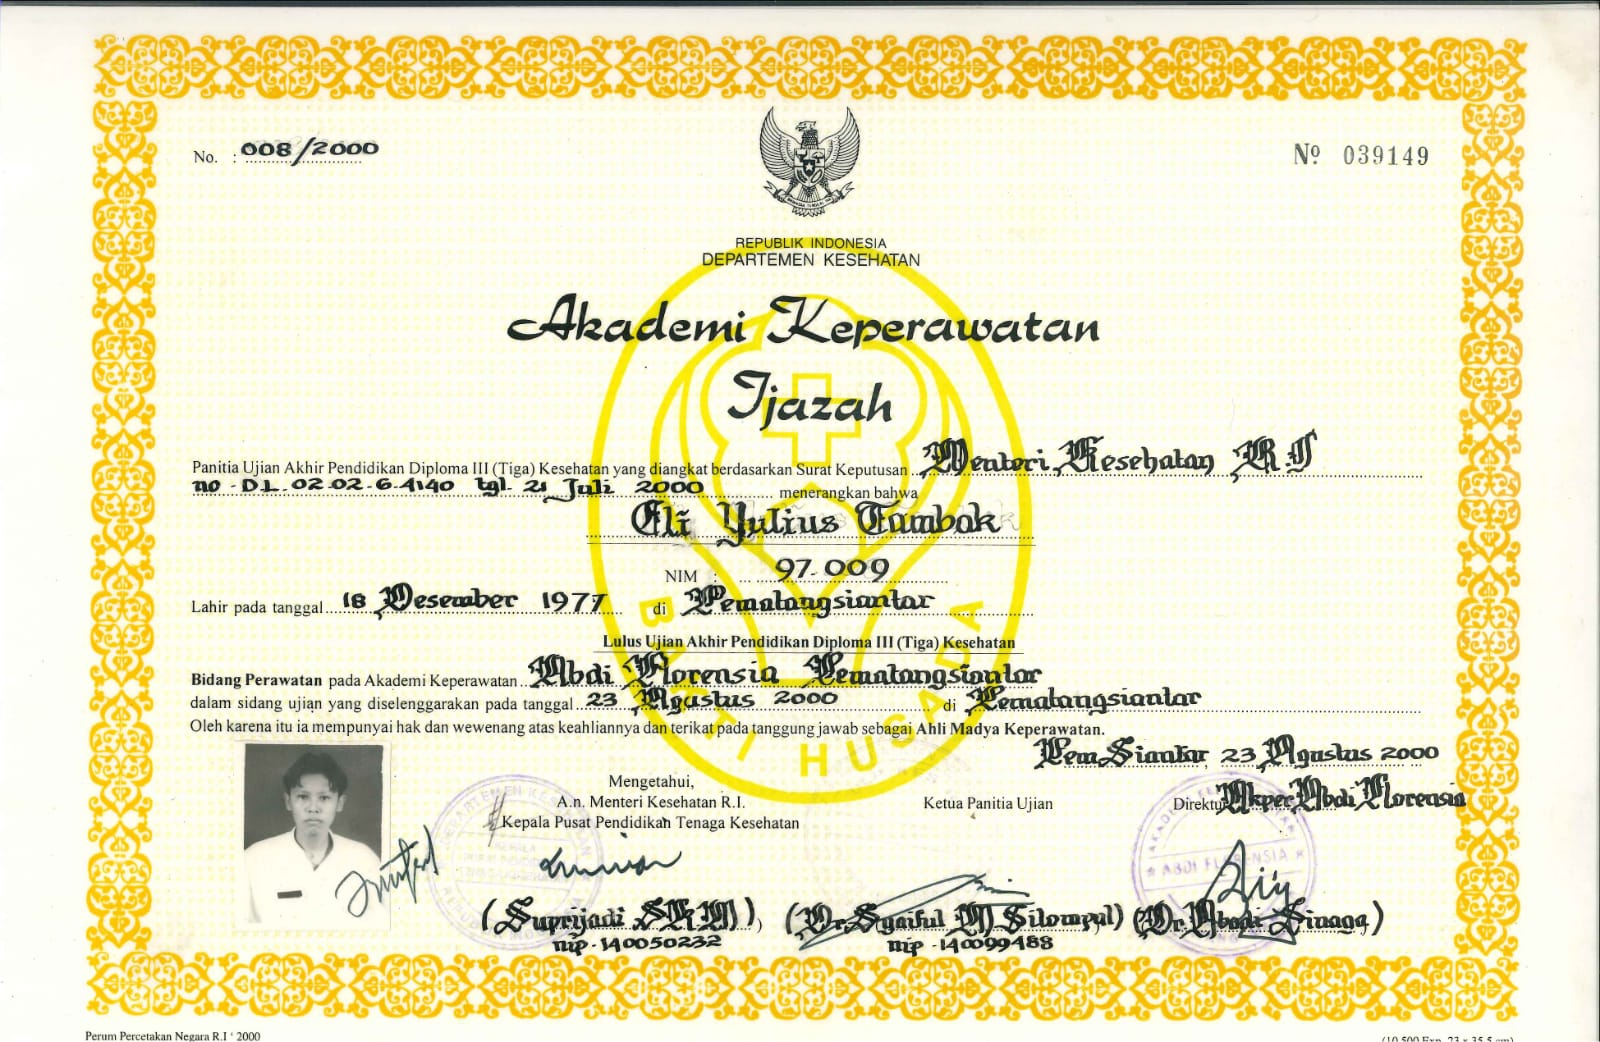 No. : 008/2000
Nº 039149
REPUBLIK INDONESIA
DEPARTEMEN KESEHATAN
Akademi Keperawatan
Ijazah
Panitia Ujian Akhir Pendidikan Diploma III (Tiga) Kesehatan yang diangkat berdasarkan Surat Keputusan Menteri Kesehatan R.I
no - DL. 02.02.6.4140 tgl. 21 Juli 2000 menerangkan bahwa
Eli Yulius Tambak
NIM : 97.009
Lahir pada tanggal 18 Desember 1977 di Pematangsiantar
Lulus Ujian Akhir Pendidikan Diploma III (Tiga) Kesehatan
Bidang Perawatan pada Akademi Keperawatan Abdi Florensia Pematangsiantar
dalam sidang ujian yang diselenggarakan pada tanggal 23 Agustus 2000 di Pematangsiantar
Oleh karena itu ia mempunyai hak dan wewenang atas keahliannya dan terikat pada tanggung jawab sebagai Ahli Madya Keperawatan.
BAKTI HUSADA
Pem. Siantar, 23 Agustus 2000
Mengetahui,
A.n. Menteri Kesehatan R.I.
Kepala Pusat Pendidikan Tenaga Kesehatan
Ketua Panitia Ujian
Direktur Akper Abdi Florensia
ABDI FLORENSIA
(Suprijadi SKM)
nip. 140050232
(Dr. Syaiful M Sitompul)
nip. 140099488
(Dr. Abadi Sinaga)
Perum Percetakan Negara R.I ' 2000
(10.500 Exp. 23 x 35,5 cm)